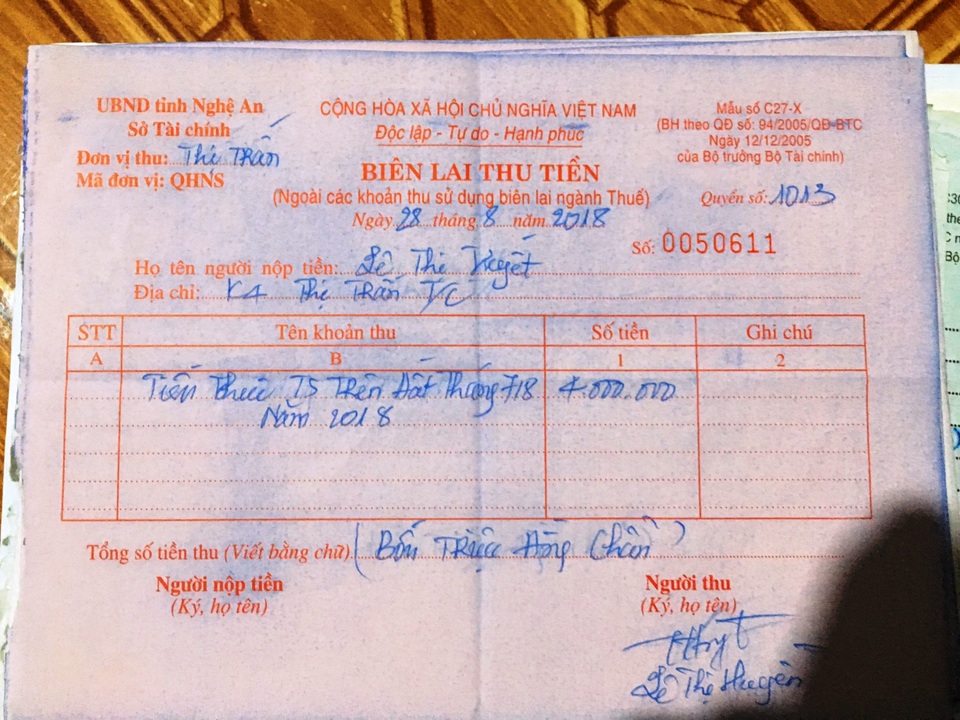 UBND tỉnh Nghệ An
Sở Tài chính
Đơn vị thu: Thị Trấn
Mã đơn vị: QHNS
CỘNG HÒA XÃ HỘI CHỦ NGHĨA VIỆT NAM
Độc lập - Tự do - Hạnh phúc
BIÊN LAI THU TIỀN
(Ngoài các khoản thu sử dụng biên lai ngành Thuế)
Ngày 28 tháng 8 năm 2018
Mẫu số C27-X
(BH theo QĐ số: 94/2005/QĐ-BTC
Ngày 12/12/2005
của Bộ trưởng Bộ Tài chính)
Quyển số: 1013
Số: 0050611
Họ tên người nộp tiền: Lê Thị
Địa chỉ: K4 Thị Trấn TC
STT Tên khoản thu Số tiền Ghi chú
A B 1 2
Tiền thuê TS Trên đất Tháng 7/8 4.000.000
Năm 2018
Tổng số tiền thu (Viết bằng chữ) (Bốn Triệu đồng Chẵn)
Người nộp tiền
(Ký, họ tên)
Người thu
(Ký, họ tên)
Lê Thị Huyền